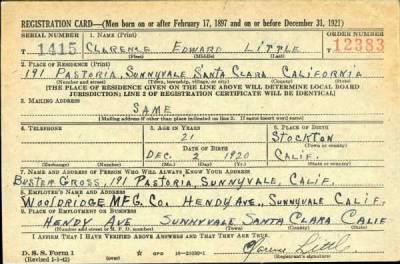 REGISTRATION CARD—(Men born on or after February 17, 1897 and on or before December 31, 1921)
SERIAL NUMBER 1. NAME (Print) ORDER NUMBER
T 1415 CLARENCE EDWARD LITTLE T 12383
(First) (Middle) (Last)
2. PLACE OF RESIDENCE (Print)
191 PASTORIA, SUNNYVALE SANTA CLARA CALIFORNIA
(Number and street) (Town, township, village, or city) (County) (State)
[THE PLACE OF RESIDENCE GIVEN ON THE LINE ABOVE WILL DETERMINE LOCAL BOARD
JURISDICTION; LINE 2 OF REGISTRATION CERTIFICATE WILL BE IDENTICAL]
3. MAILING ADDRESS
SAME
[Mailing address if other than place indicated on line 2. If same insert word same]
4. TELEPHONE 5. AGE IN YEARS 6. PLACE OF BIRTH
21 STOCKTON
DATE OF BIRTH (Town or county)
DEC. 2 1920 CALIF.
(Exchange) (Number) (Mo.) (Day) (Yr.) (State or country)
7. NAME AND ADDRESS OF PERSON WHO WILL ALWAYS KNOW YOUR ADDRESS
BUSTER GROSS, 191 PASTORIA, SUNNYVALE, CALIF.
8. EMPLOYER'S NAME AND ADDRESS
WOOLDRIDGE MFG. CO. HENDY AVE., SUNNYVALE CALIF.
9. PLACE OF EMPLOYMENT OR BUSINESS
HENDY AVE SUNNYVALE SANTA CLARA CALIF
(Number and street or R. F. D. number) (Town) (County) (State)
I AFFIRM THAT I HAVE VERIFIED ABOVE ANSWERS AND THAT THEY ARE TRUE.
D. S. S. Form 1 GPO Little
(Revised 1-1-42)